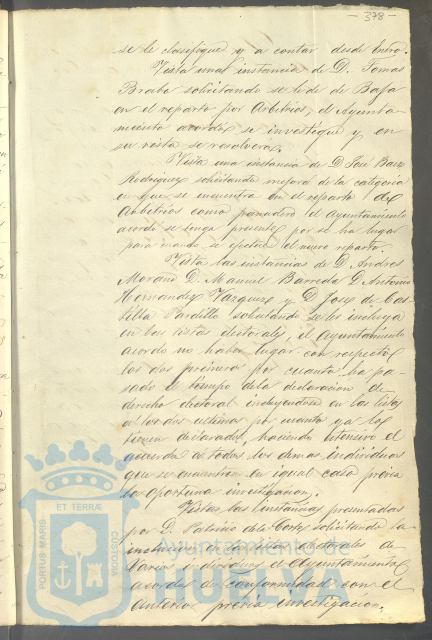 - 378 -
se le clasifique y a contar desde Enero.
Vista una instancia de D. Tomas
Brabo solicitando se le de de Baja
en el reparto por Arbitrios, el Ayunta-
miento acordó se investigue y en
su vista se resolvera.
Vista una instancia de D José Baez
Rodriguez solicitando mejora de la categoria
en que se encuentra en el reparto de
Arbitrios como panadero el Ayuntamiento
acordó se tenga presente por se ha lugar
para cuando se efectue el nuevo reparto.
Vista las instancias de D. Andres
Moraño D. Manuel Barreda D. Antonio
Hernandez Vazquez y D. José de Cas-
tilla Pardillo solicitando se les incluya
en las listas electorales, el Ayuntamiento
acordó no haber lugar con respecto á
los dos primeros por cuanto ha pa-
sado el tiempo de la declaracion de
derecho electoral incluyendose en las listas
a los dos ultimos por cuanto ya los
tienen declarados, haciendo estensivo el
acuerdo a todos los demas individuos
que se encuentren en igual caso previa
la oportuna investigacion.
Vistas las instancias presentadas
por D. Patricio de la Corte solicitando la
inclusion en las listas electorales de
varios individuos el Ayuntamiento
acordó de conformidad con el
anterior previa investigacion.
PORTUS MARIS ET TERRÆ CUSTODIA
Ayuntamiento de
HUELVA